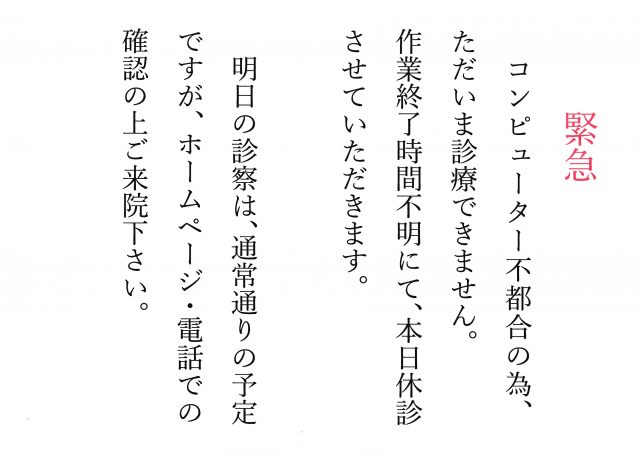 緊急
コンピューター不都合の為、
ただいま診療できません。
作業終了時間不明にて、本日休診
させていただきます。
明日の診察は、通常通りの予定
ですが、ホームページ・電話での
確認の上ご来院下さい。